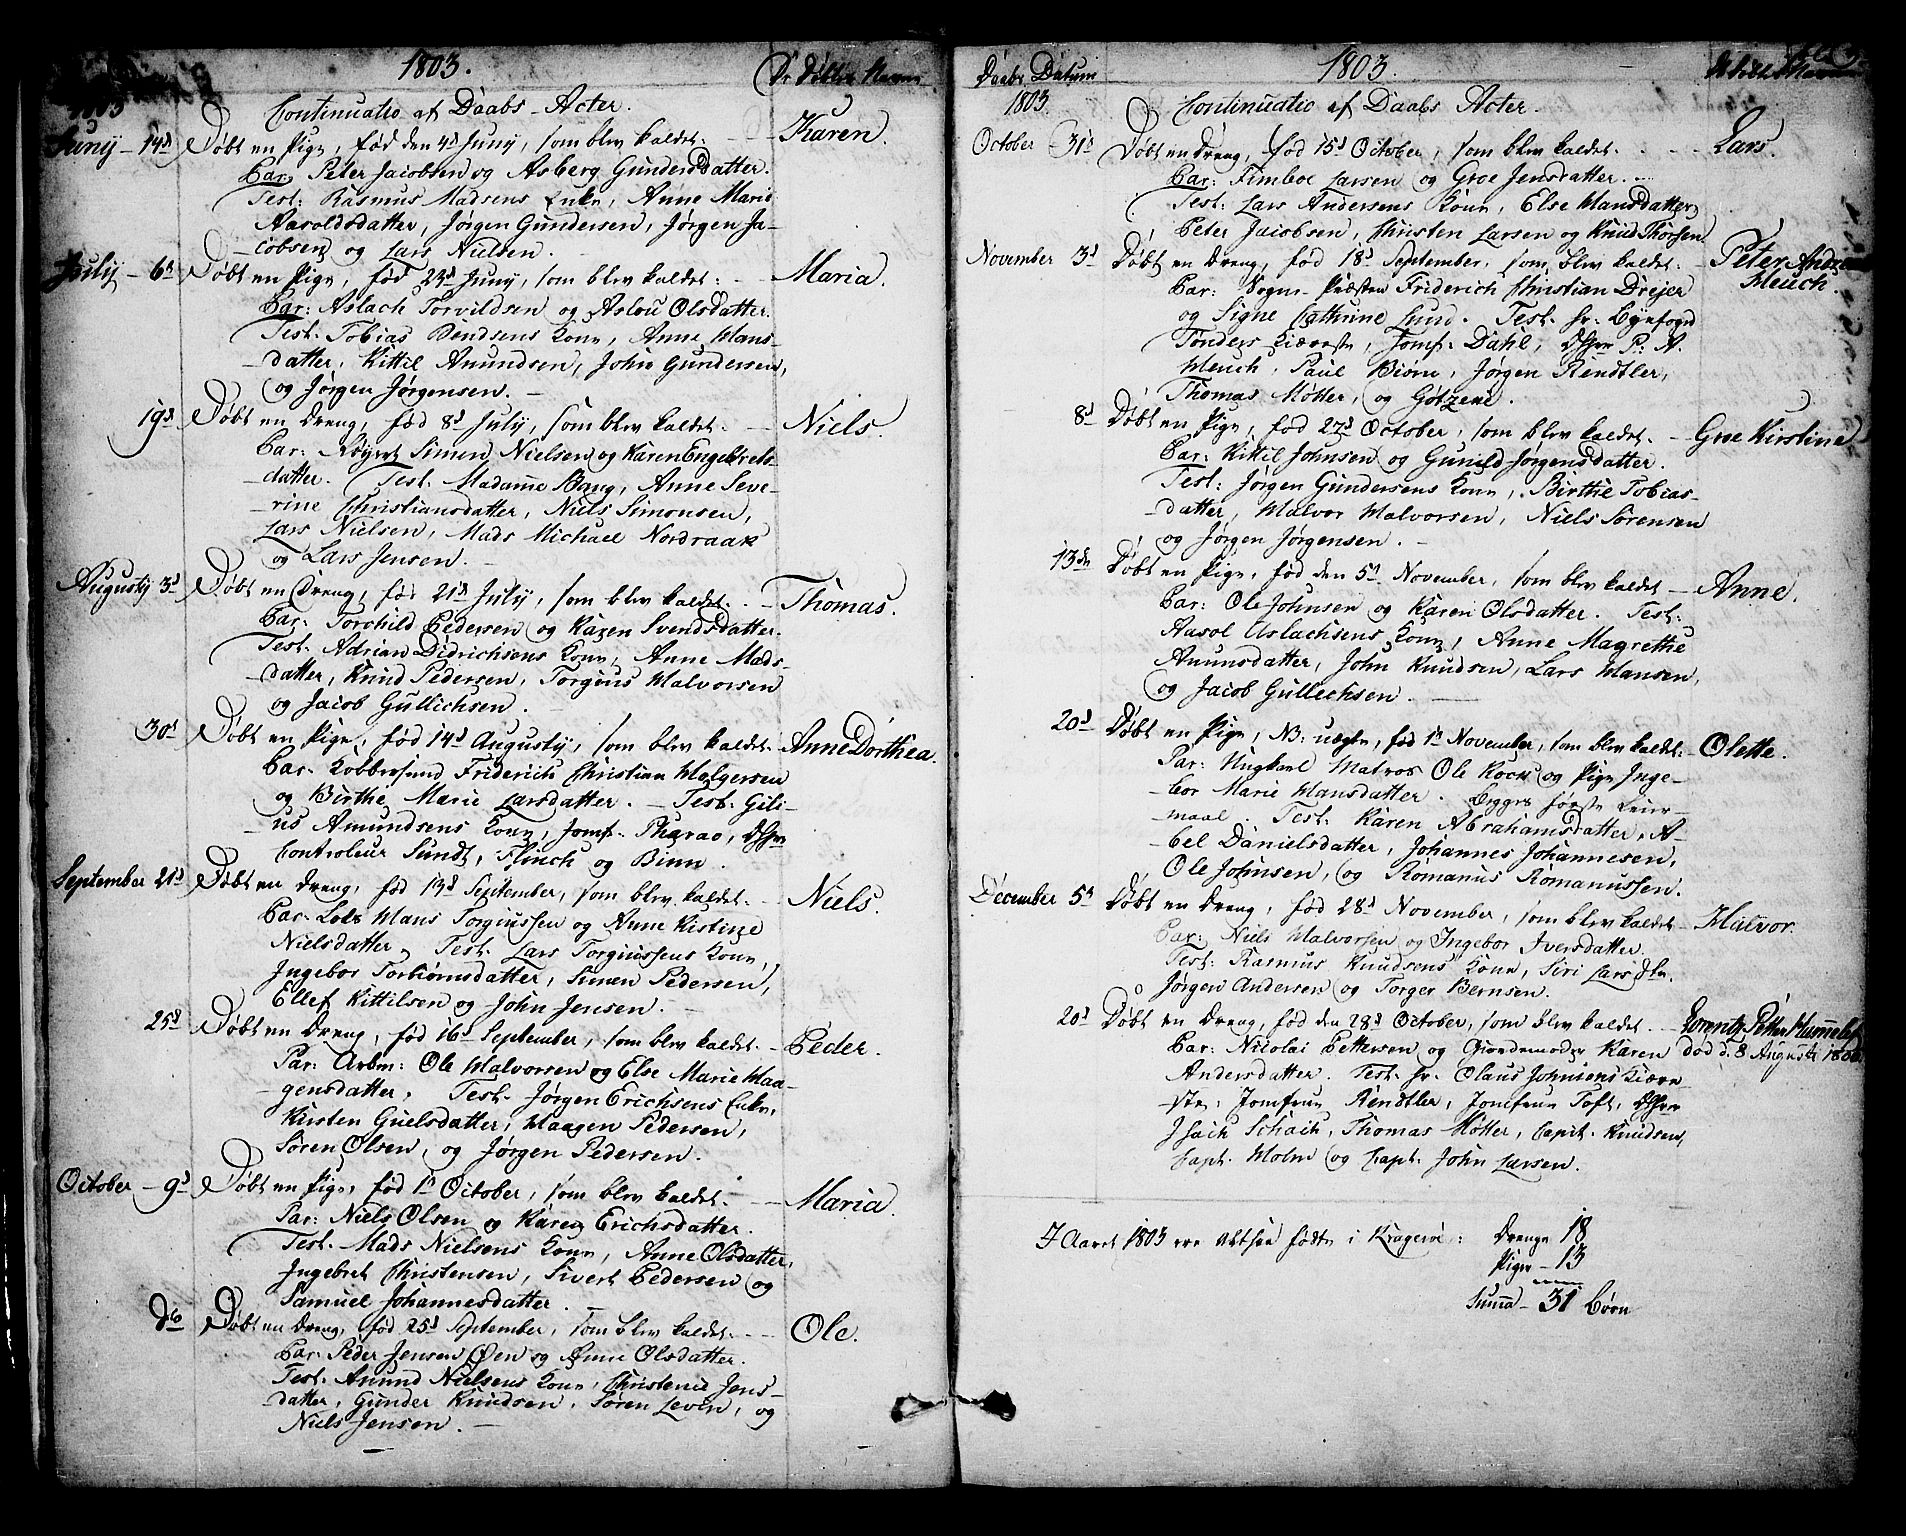 1803.
De Døbtes Navne
1803
Continuatio af Daabs-Acter.
Juny - 14d Døbt en Pige, fød den 4d Juny, som blev kaldet. - Karen.
Par: Peter Jacobsen og Asberg GundersDatter.
Test: Rasmus Madsens Enke, Anne Marie
Aaroldsdatter, Jørgen Gundersen, Jørgen Ja-
cobsen og Lars Nielsen.
July - 6d Døbt en Pige, fød 24d Juny, som blev kaldet: - Maria.
Par: Aslach Torvildsen og Aslou Olsdatter.
Test: Tobias Bendsens Kone, Anne Hans-
datter, Kittil Anundsen, John Gundersen,
og Jørgen Jørgensen.
19d Døbt en Dreng, fød 8d July, som blev kaldet. - Niels.
Par: Simen Nielsen og Karen Engebrets-
datter. Test. Madame Bang, Anne Seve-
rine Christiansdatter, Niels Simonsen,
Lars Nielsen, Mads Michael Nordraak
og Lars Jensen.
Augusty 3d Døbt en Dreng, fød 21d July, som blev kaldet. - Thomas.
Par: Torchild Pedersen og Karen Svendsdatter.
Test. Adrian Didrichsens Kone, Anne Mads-
datter, Knud Pedersen, Torgius Halvorsen
og Jacob Gullichsen.
30d Døbt en Pige, fød 14d Augusty, som blev kaldet. Anne Dorthea.
Par. Kobbersmed Friderich Christian Holgersen
og Birthe Marie Larsdatter. - Test. Gili-
us Amundsens Kone, Jomf. Pharao, DHrr
Controleur Sundt, Flinch og Binn.
September 21d Døbt en Dreng, fød 13d September, som blev kaldet. - Niels.
Par. Lods Hans Torgiussen og Anne Kistine
Nielsdatter. Test. Lars Torgiussens Kone,
Ingebor Torbiørnsdatter, Simen Pedersen,
Ellef Kittilsen og John Jensen.
25d Døbt en Dreng, fød 16d September, som blev kaldet. - Peder.
Par: Arbm: Ole Halvorsen og Else Marie Haa-
gensdatter. Test. Jørgen Erichsens Enke,
Kirsten Guelsdatter, Haagen Pedersen,
Søren Olsen, og Jørgen Pedersen.
October - 9d Døbt en Pige, fød 1d October, som blev kaldet. - Maria.
Par: Niels Olsen og Karen Erichsdatter.
Test. Mads Nielsens Kone, Anne Olsdatter,
Ingebret Christensen, Sivert Pedersen og
Samuel Johannesdatter.
do Døbt en Dreng, fød 25d September, som blev kaldet. - Ole.
Par: Peder Jensen Øen og Anne Olsdatter.
Test. Anund Nielsens Kone, Christence Jens-
datter, Gunder Knudsen, Søren Levin, og
Niels Jensen.
Daabs Datum
1803.
1803.
Continuatio af Daabs Acter.
October 31d Døbt en Dreng, fød 15d October, som blev kaldet. - Lars.
Par: Timboe Larsen og Groe Jensdatter.
Test: Lars Andersens Kone, Else Hansdatter,
Peter Jacobsen, Christen Larsen og Knud Thorsen.
November 3d Døbt en Dreng, fød 18d September, som blev kaldet. - Peter Andreas
Heuch.
Par: Sogne-Præsten Friderich Christian Drejer
og Signe Cathrine Lund. Test. Hr. Byefogd
Tønders Kiæreste, Jomf. Dahl, DHrr P: A.
Heuch, Paul Biørn, Jørgen Rendtler,
Thomas Møtter, og Götzene.
8d Døbt en Pige, fød 27d October, som blev kaldet. - Groe Kirstine
Par: Kittil Johnsen og Gunild Jørgensdatter.
Test: Jørgen Gundersens Kone, Birthe Tobias-
datter, Halvor Halvorsen, Niels Sørensen
og Jørgen Jørgensen.
13de Døbt en Pige, fød den 5d November, som blev kaldet - Anne.
Par: Ole Johnsen og Karen Olsdatter. Test:
Aasol Aslachsens Kone, Anne Magrethe
Anunsdatter, John Knudsen, Lars Hansen,
og Jacob Gullichsen.
20d Døbt en Pige, NB: uægte, fød 1d November, som blev kaldet: - Olette.
Par: Ungkarl Matros Ole Koch og Pige Inge-
bor Marie Hansdatter. Begges første Leier-
maal. Test. Karen Abrahamsdatter, A-
bel Danielsdatter, Johannes Johannesen,
Ole Johnsen, og Romanus Romanussen.
December 5d Døbt en Dreng, fød 28d November, som blev kaldet - Halvor.
Par: Niels Halvorsen og Ingebor Iversdatter.
Test: Rasmus Knudsens Kone, Siri Lars dtr.
Jørgen Andersen og Torger Bernsen.
20d Døbt en Dreng, fød den 28d October, som blev kaldet. - Lorentz Petter Hummelhof
Par: Nicolai Pettersen og Giordemoder Karen død d. 8 Augusti
Andersdatter. Test. Hr. Olaus Johnsens Kiære-
ste, Jomfrue Rendtler, Jomfrue Toft, DHrr
Isach Schach, Thomas Møtter, Capit. Knudsen,
Capt. Holm og Capt. John Larsen.
I Aaret 1803 ere altsaa fødte i Kragerøe: Drenge 18
Piger - 13
Summa - 31 Børn